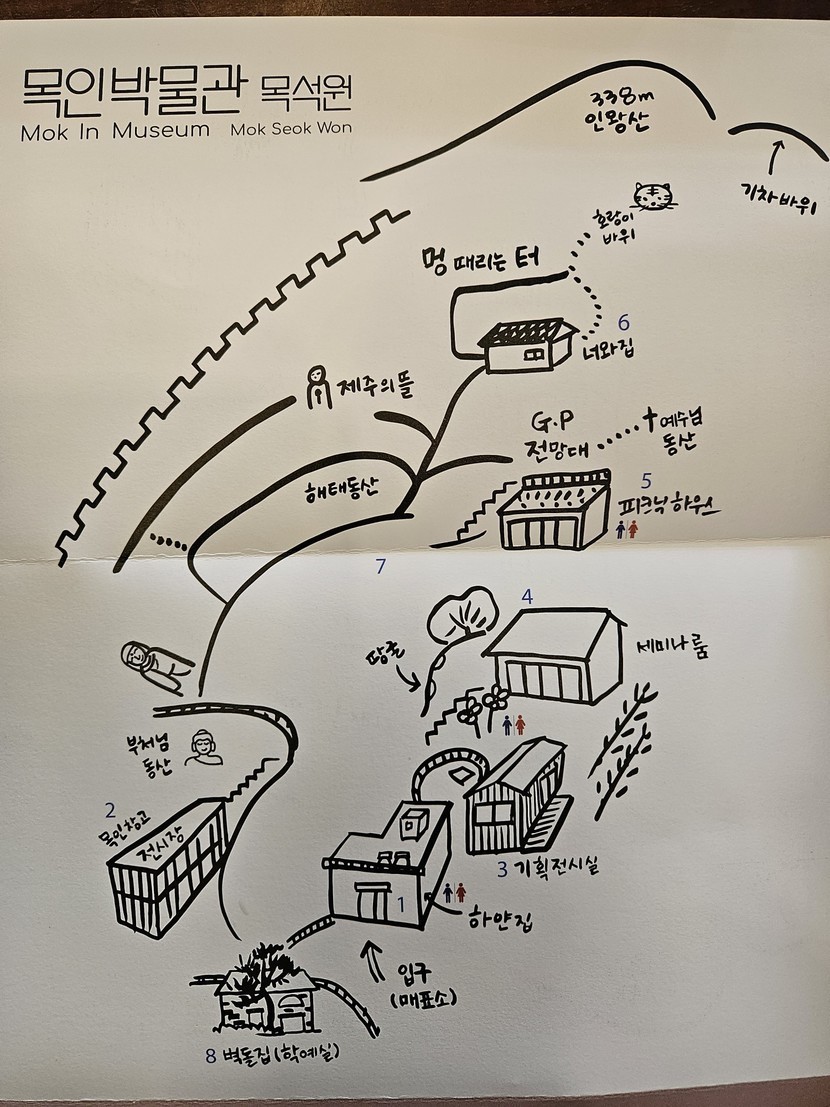 목인박물관 목석원
Mok In Museum Mok Seok Won
338m
인왕산
기차바위
호랑이
바위
멍 때리는 터
6
너와집
제주의뜰
G.P
전망대
예수님
동산
해태동산
5
피크닉하우스
7
4
땅굴
세미나룸
부처님
동산
2
목인창고
전시장
3 기획전시실
1
하얀집
입구
(매표소)
8 벽돌집(학예실)